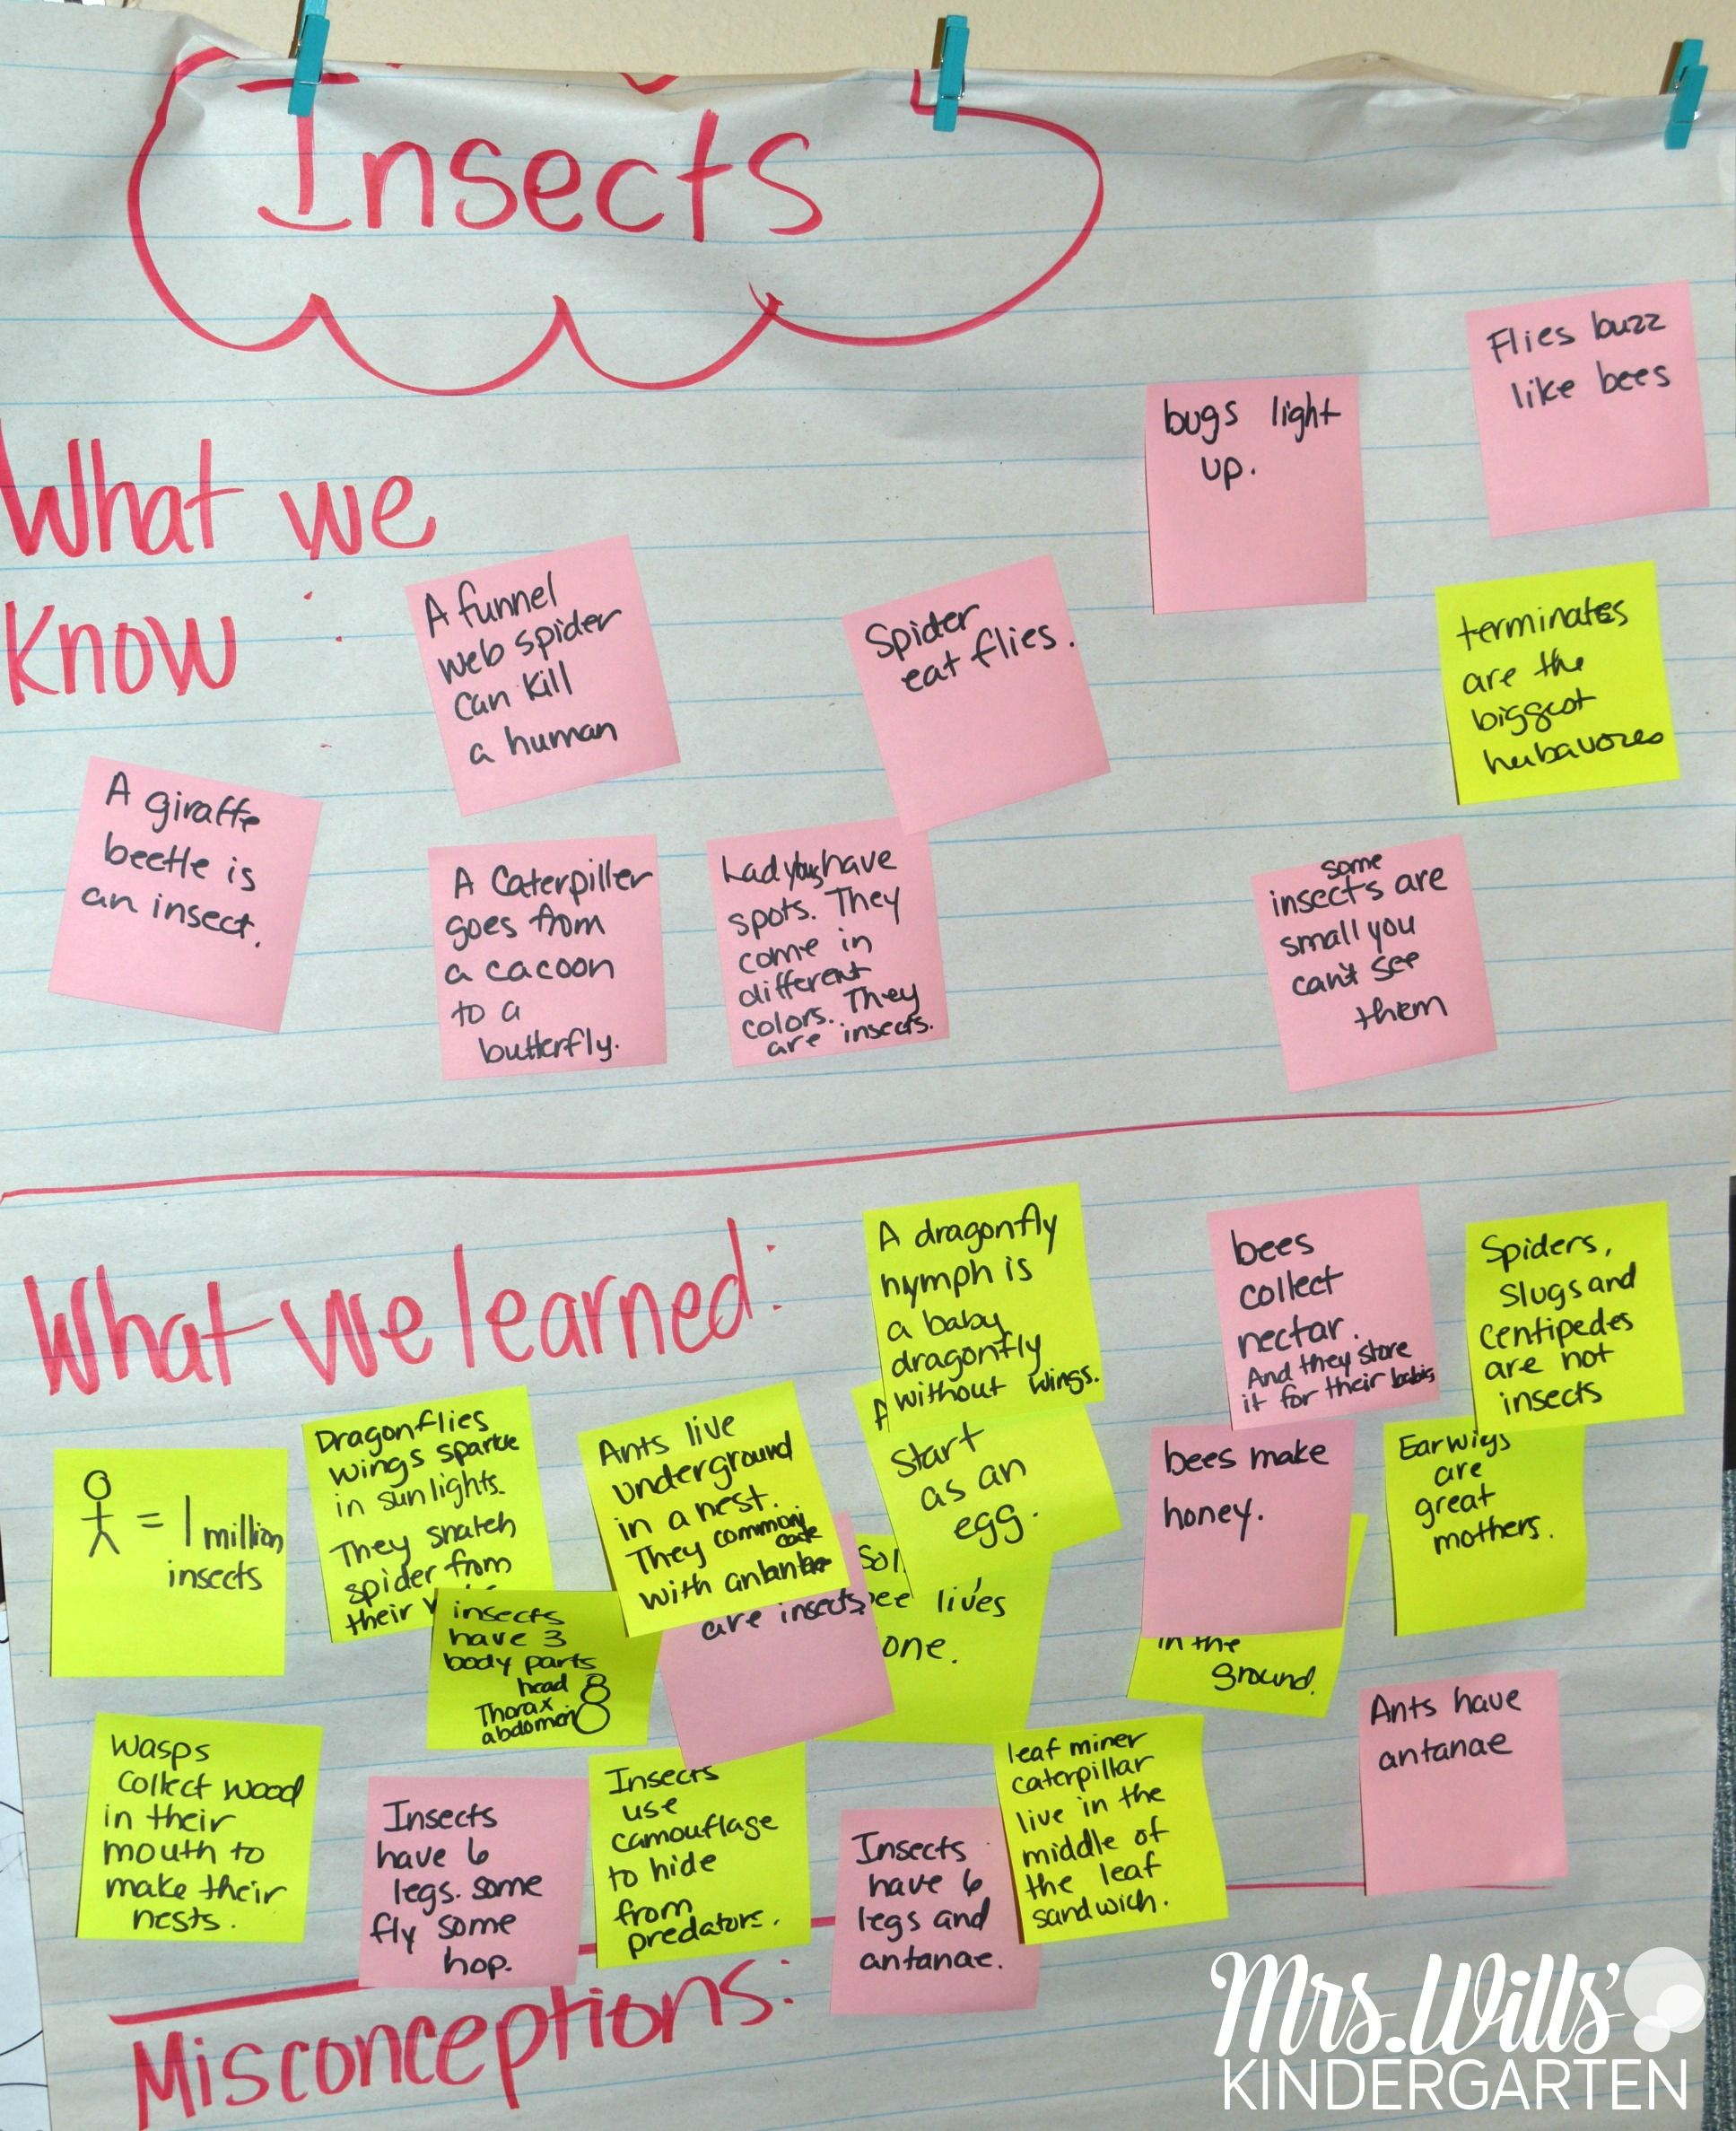 Insects
What we
Know :
Flies buzz
like bees
bugs light
up.
A funnel
web spider
can kill
a human
Spider
eat flies.
terminates
are the
biggest
hubavores
A giraffe
beetle is
an insect.
A Caterpiller
goes from
a cacoon
to a
butterfly.
Ladybugs have
spots. They
come in
different
colors. They
are insects.
some
insects are
small you
can't see
them
What we learned:
A dragonfly
nymph is
a baby
dragonfly
without wings.
bees
collect
nectar.
And they store
it for their babies
Spiders,
Slugs and
Centipedes
are not
insects
= 1 million
insects
Dragonflies
wings sparkle
in sunlights.
They snatch
spider from
their
Ants live
underground
in a nest.
They common
cate
with
Start
as an
egg.
bees make
honey.
Earwigs
are
great
mothers.
insects
have 3
body parts
head
Thorax
abdomen
are insects
lives
one.
in the
ground.
Ants have
antanae
Wasps
Collect wood
in their
mouth to
make their
nests.
Insects
have 6
legs. some
fly some
hop.
Insects
use
camouflage
to hide
from
predators.
Insects
have 6
legs and
antanae.
leaf miner
caterpillar
live in the
middle of
the leaf
sandwich.
Misconceptions:
Mrs. Wills'
KINDERGARTEN